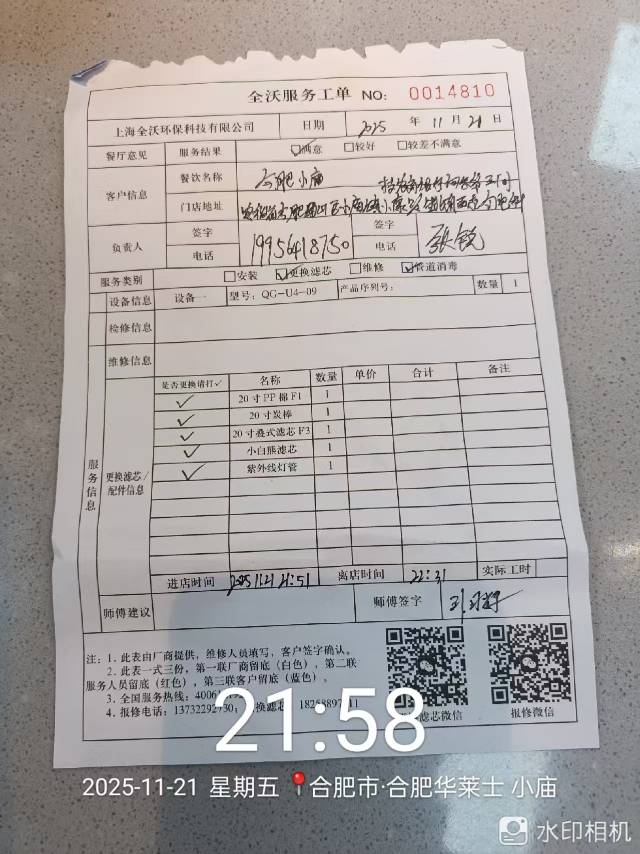 全沃服务工单 NO: 0014810
上海全沃环保科技有限公司 日期 2025 年 11 月 21 日
餐厅意见 服务结果 ☑满意 □较好 □较差不满意
客户信息 餐饮名称 合肥小庙
门店地址
负责人 签字 电话 19956418750 签字 电话 张锐
服务类别 □安装 ☑更换滤芯 □维修 ☑管道消毒
设备信息 设备一 型号: QG-U4-09 产品序列号: 数量 1
检修信息
维修信息
服务信息 更换滤芯/配件信息
是否更换请打✓ 名称 数量 单价 合计 备注
✓ 20寸PP棉F1 1
✓ 20寸炭棒 1
✓ 20寸叠式滤芯F3 1
✓ 小白熊滤芯 1
✓ 紫外线灯管 1
进店时间 2025.11.21 21:51 离店时间 22:31 实际工时
师傅建议 师傅签字
注: 1. 此表由厂商提供, 维修人员填写, 客户签字确认。
2. 此表一式三份, 第一联厂商留底(白色), 第二联
服务人员留底(红色), 第三联客户留底(蓝色)。
3. 全国服务热线: 4006
4. 报修电话: 13732292730
滤芯微信 报修微信
21:58
2025-11-21 星期五 合肥市·合肥华莱士 小庙
水印相机